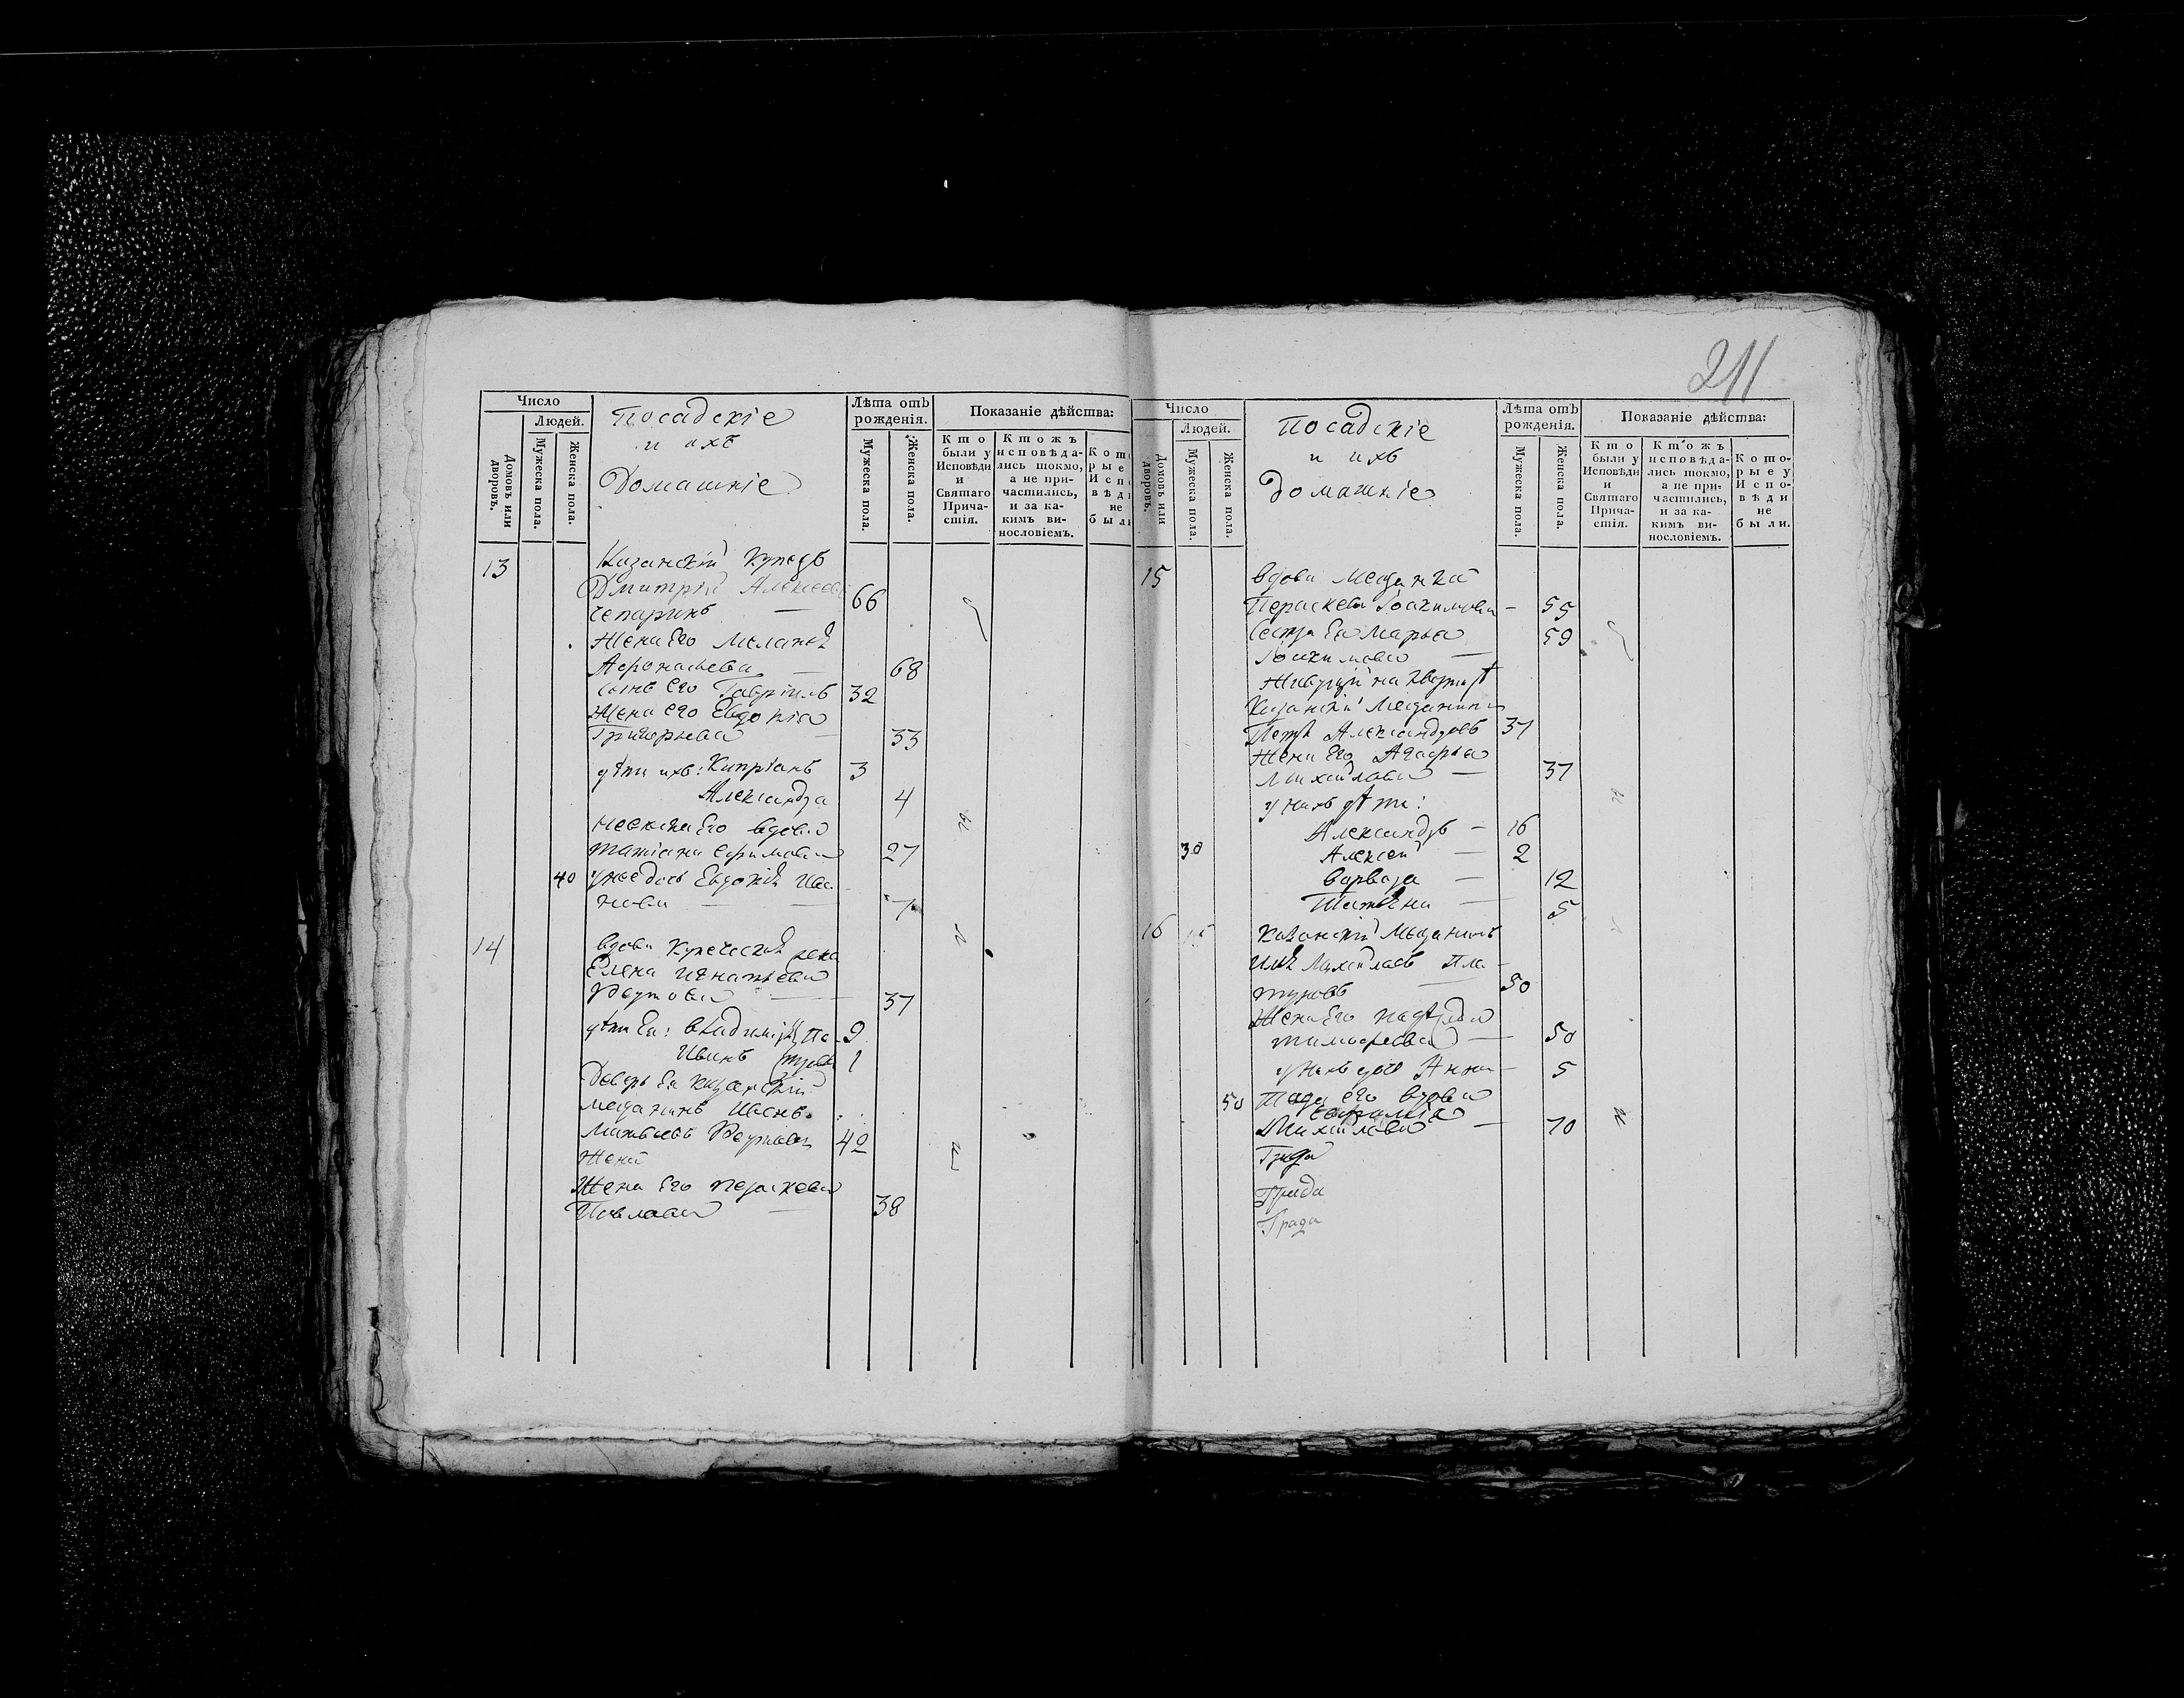 211
Число
Людей.
Домовъ или дворовъ.
Мужеска пола.
Женска пола.
Посадскіе
и ихъ
Домашніе
Лѣта отъ рожденія.
Мужеска пола.
Женска пола.
Показаніе дѣйства:
Кто были у Исповѣди и Святаго Причастія.
Ктожъ исповѣдались токмо, а не причастились, и за какимъ винословіемъ.
13 Казанскій Купецъ
Дмитрій Алексеевъ
Чепаринъ — 66
Жена Его Меланья
68
сынъ Его Гавріилъ 32
Жена Его Евдокія
Григорьева — 33
дѣти ихъ: Кипріанъ 3
Александра 4
невѣстка Его вдова
Татіана Ефимова 27
40 у нее дочь Евдокія Ива-
нова — 7
14 Вдова Купеческая жена
Елена Игнатьева
37
дѣти Ея: Владимиръ 9
Иванъ 1
Деверь Ея Казанскій
мещанинъ Иванъ
42
Жена
Жена Его Параскева
Павлова — 38
Число
Людей.
Домовъ или дворовъ.
Мужеска пола.
Женска пола.
Посадскіе
и ихъ
Домашніе
Лѣта отъ рожденія.
Мужеска пола.
Женска пола.
Показаніе дѣйства:
Кто были у Исповѣди и Святаго Причастія.
Ктожъ исповѣдались токмо, а не причастились, и за какимъ винословіемъ.
Которые у Исповѣди не были.
15 Вдова Мещанка
Параскева Іоакимова — 55
Сестра Ея Марья 59
Іоакимова —
Живущій на квартирѣ
Казанскій Мещанинъ
Петръ Александровъ 37
Жена Его Агафья
Михайлова — 37
у нихъ дѣти:
Александръ — 16
30 Алексей — 2
Варвара — 12
Татьяна — 5
16 Казанскій Мещанинъ
Илья Михайловъ Пла-
туновъ — 50
Жена Его
Тимофеева — 50
у нихъ дочь Анна — 5
50 Теща Его вдова
Евфимія
Михайлова — 70
Града
Града
Града